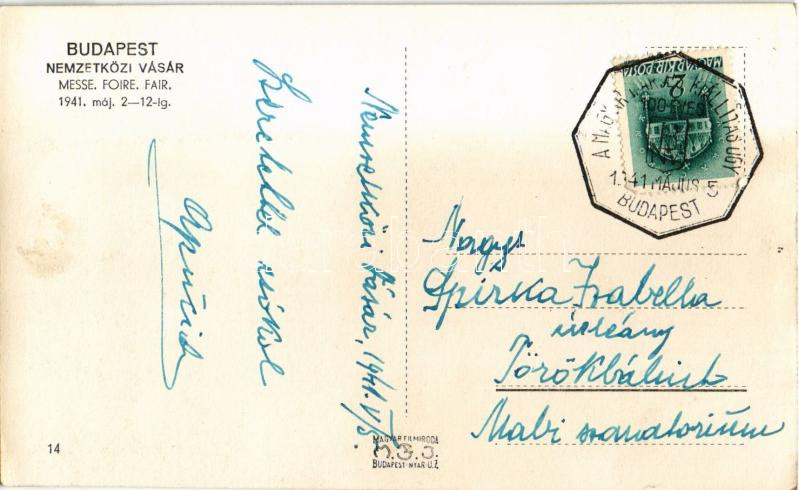 BUDAPEST
NEMZETKÖZI VÁSÁR
MESSE. FOIRE. FAIR.
1941. máj. 2—12-ig.
Szeretettel csókol
Apucid
Nemzetközi Vásár, 1941. V/5.
MAGYAR KIR. POSTA
2
1941 MÁJUS 5
BUDAPEST
Nagys
Spirka Izabella
úrleány
Törökbálint
Mabi szanatorium
14
MAGYAR FILMIRODA
BUDAPEST